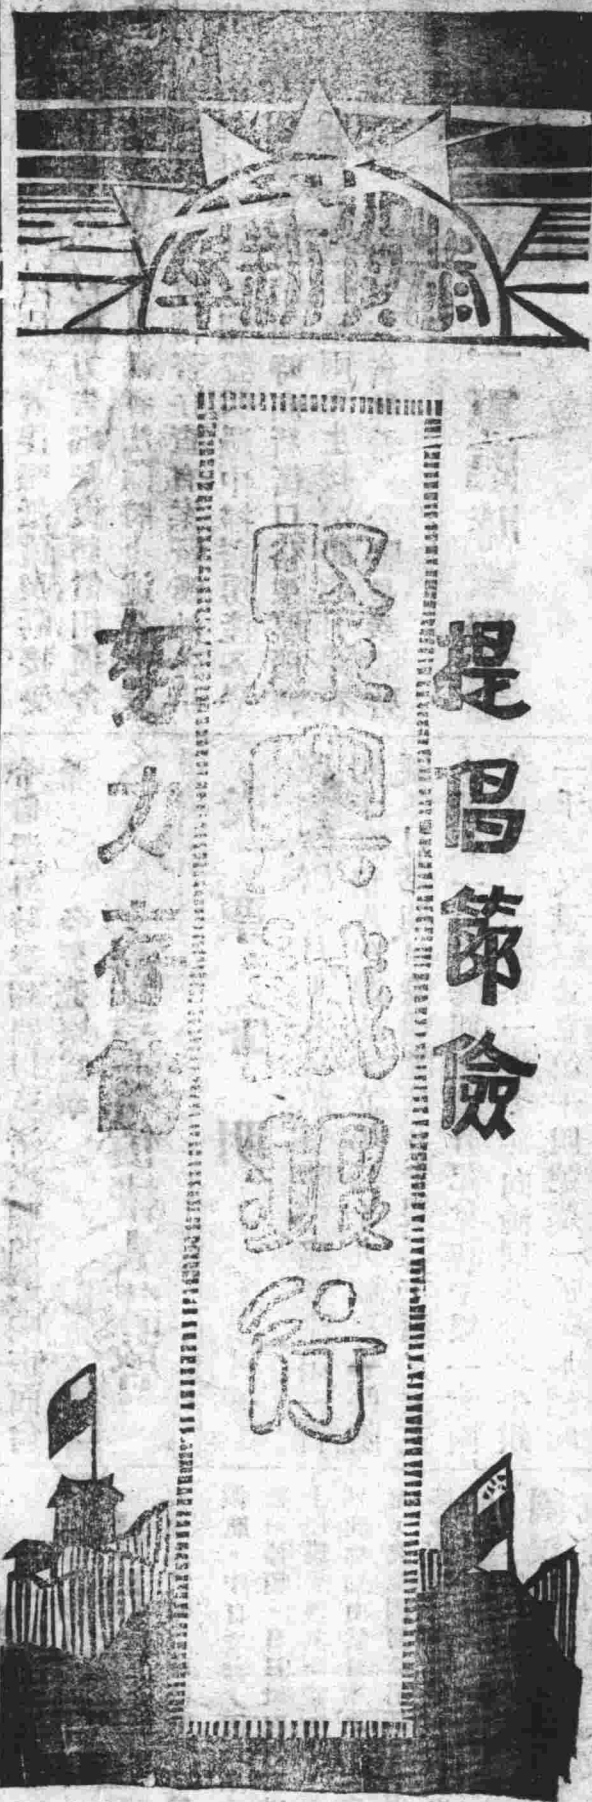 恭賀新年
提倡節儉
聚興誠銀行
努力存儲